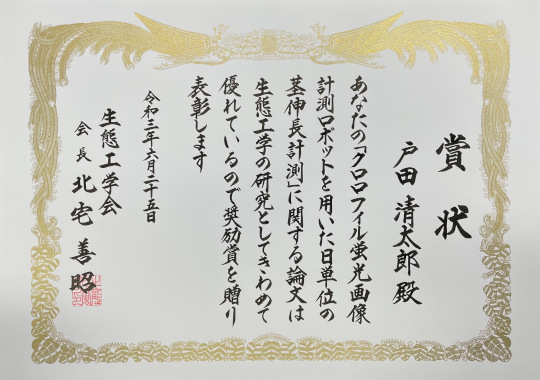 賞状
戸田清太郎殿
あなたの「クロロフィル蛍光画像
計測ロボットを用いた日単位の
茎伸長計測」に関する論文は
生態工学の研究としてきわめて
優れているので奨励賞を贈り
表彰します
令和三年六月二十五日
生態工学会
会長 北宅善昭